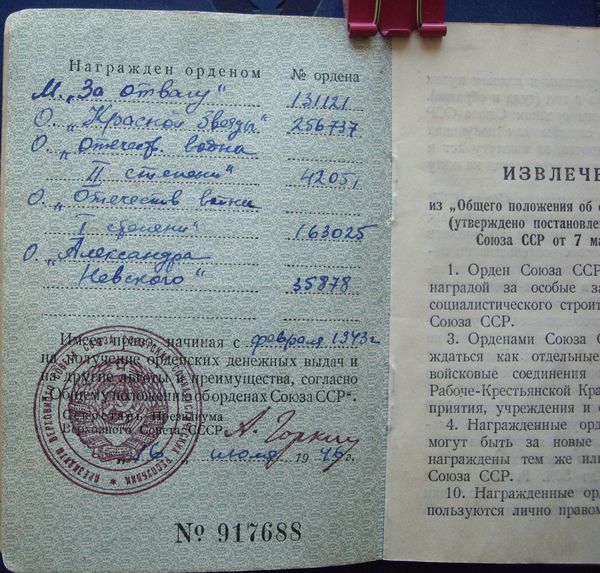 Награжден орденом № ордена
М. „За отвагу" 131121
О. „Красной Звезды" 256737
О. „Отечеств. война
II степени" 42051
О. „Отечеств войны
I степени" 163025
О. „Александра
Невского" 35878
Имеет право, начиная с февраля 1943г
на получение орденских денежных выдач и
на другие льготы и преимущества, согласно
„Общему положению об орденах Союза ССР".
Секретарь Президиума
Верховного Совета СССР А. Горкин
„16" июля 1946г.
№ 917688
ИЗВЛЕЧЕ
из „Общего положения об
(утверждено постановле
Союза ССР от 7 ма
1. Орден Союза ССР
наградой за особые за
социалистического строит
Союза ССР.
3. Орденами Союза С
ждаться как отдельные
войсковые соединения
Рабоче-Крестьянской Кра
приятия, учреждения и о
4. Награжденные орд
могут быть за новые
награждены тем же или
Союза ССР.
10. Награжденные ор
пользуются лично правом